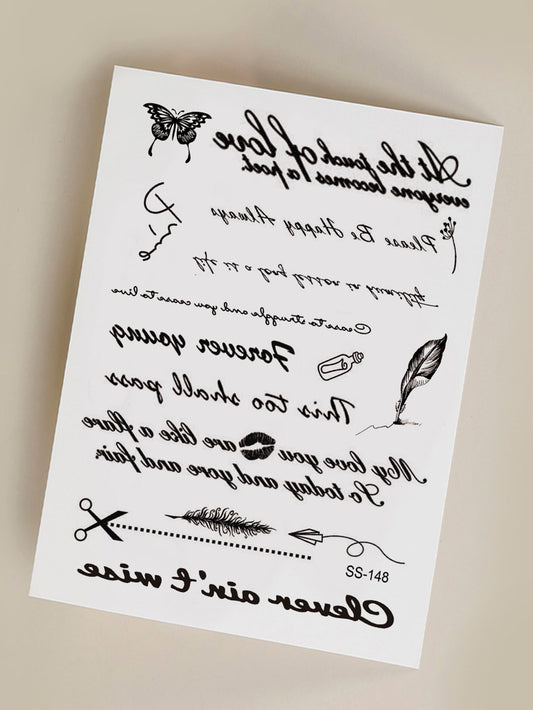 At the touch of love
everyone becomes a poet.
Please Be Happy Always
Affliand is worst god a it is life
Cease to struggle and you cease to live
Forever young
This too shall pass
My love you are like a flare
So today and yore and fair.
SS-148
Clever ain't wise